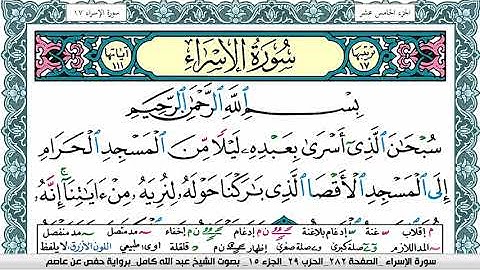 الجزء الخامس عشر
سورة الإسراء ١٧
ترتيبها ١٧
سُورَةُ الإِسْرَاء
آياتها ١١١
بِسْمِ ٱللَّهِ ٱلرَّحْمَٰنِ ٱلرَّحِيمِ
سُبْحَٰنَ ٱلَّذِىٓ أَسْرَىٰ بِعَبْدِهِۦ لَيْلًا مِّنَ ٱلْمَسْجِدِ ٱلْحَرَامِ
إِلَى ٱلْمَسْجِدِ ٱلْأَقْصَا ٱلَّذِى بَٰرَكْنَا حَوْلَهُۥ لِنُرِيَهُۥ مِنْ ءَايَٰتِنَآ ۚ إِنَّهُۥ
م إقلاب غنة إدغام بلاغنة إدغام إخفاء مد متصل مد منفصل
المد اللازم مد صلة كبرى صلة صغرى إظهار قلقلة اوى: طبيعي اللون الأزرق لا يلفظ
سورة الإسراء _الصفحة ٢٨٢_ الحزب ٢٩_ الجزء ١٥_ بصوت الشيخ عبد الله كامل_ برواية حفص عن عاصم